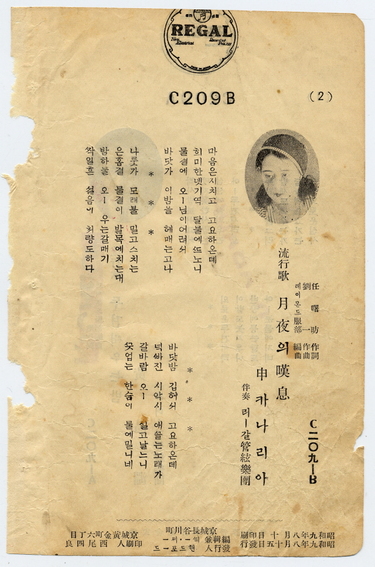 REGAL
C209B
(2)
流行歌 月夜의 嘆息
任曙昉 作詞
劉一 作曲
레이몬드服部 編曲
申카나리아
伴奏 리-갈管絃樂團
C二〇九-B
마음은시치고 고요한데
희미한녯기억 달물에또노니
물결에 오-님이어려워
바닷가 이밤을 헤매는고나
* * *
나룻가 모래불 밀고스치는
은홈결 물결이 발목에치는대
밤하늘 오- 우는갈매기
짝일흔 설음에 처량도하다
* * *
바닷밤 깁허서 고요한데
넉빠진 시악시 애끗는노래가
갈바람 오- 실고넙느니
끗업는 한숨이 물에밀니네
昭和九年八月十日印刷
昭和九年八月十五日發行
京城長谷川町
編輯兼發行人
京城黃金町六丁目
印刷人 西尾四良